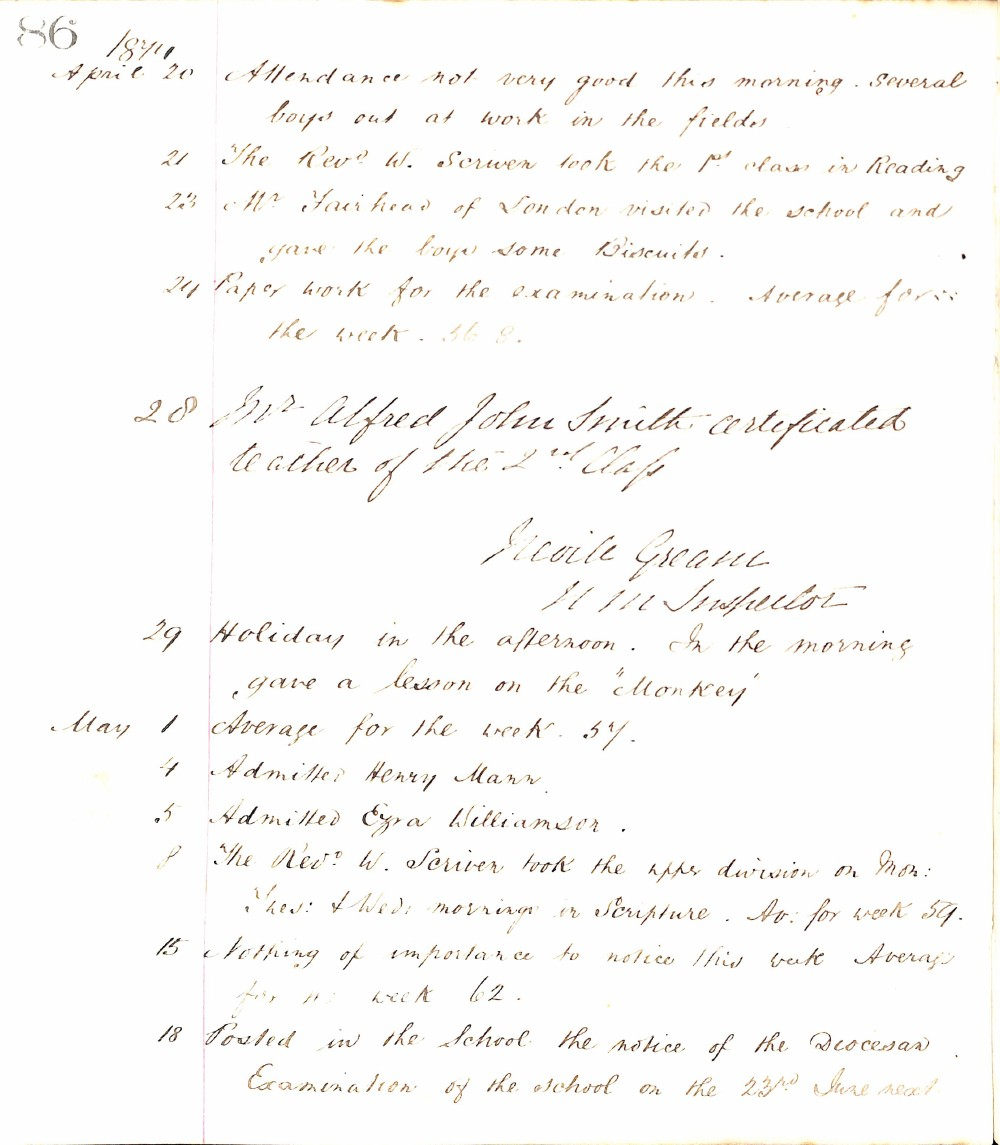 86
1874
April 20 Attendance not very good this morning. Several
boys out at work in the fields
21 The Revd W. Scriven took the 1st class in Reading
23 Mr Fairhead of London visited the school and
gave the boys some Biscuits.
24 Paper work for the examination. Average for
the week. 56 8.
28 Mr Alfred John Smith certificated
teacher of the 2nd Class
Nevile Gream
H M Inspector
29 Holiday in the afternoon. In the morning
gave a lesson on the "Monkey"
May 1 Average for the week. 57.
4 Admitted Henry Mann.
5 Admitted Ezra Williamson.
8 The Revd W. Scriven took the upper division on Mon:
Tues: & Wed: mornings in Scripture. Av: for week 59.
15 Nothing of importance to notice this week Average
for the week 62.
18 Posted in the School the notice of the Diocesan
Examination of the school on the 23rd June next